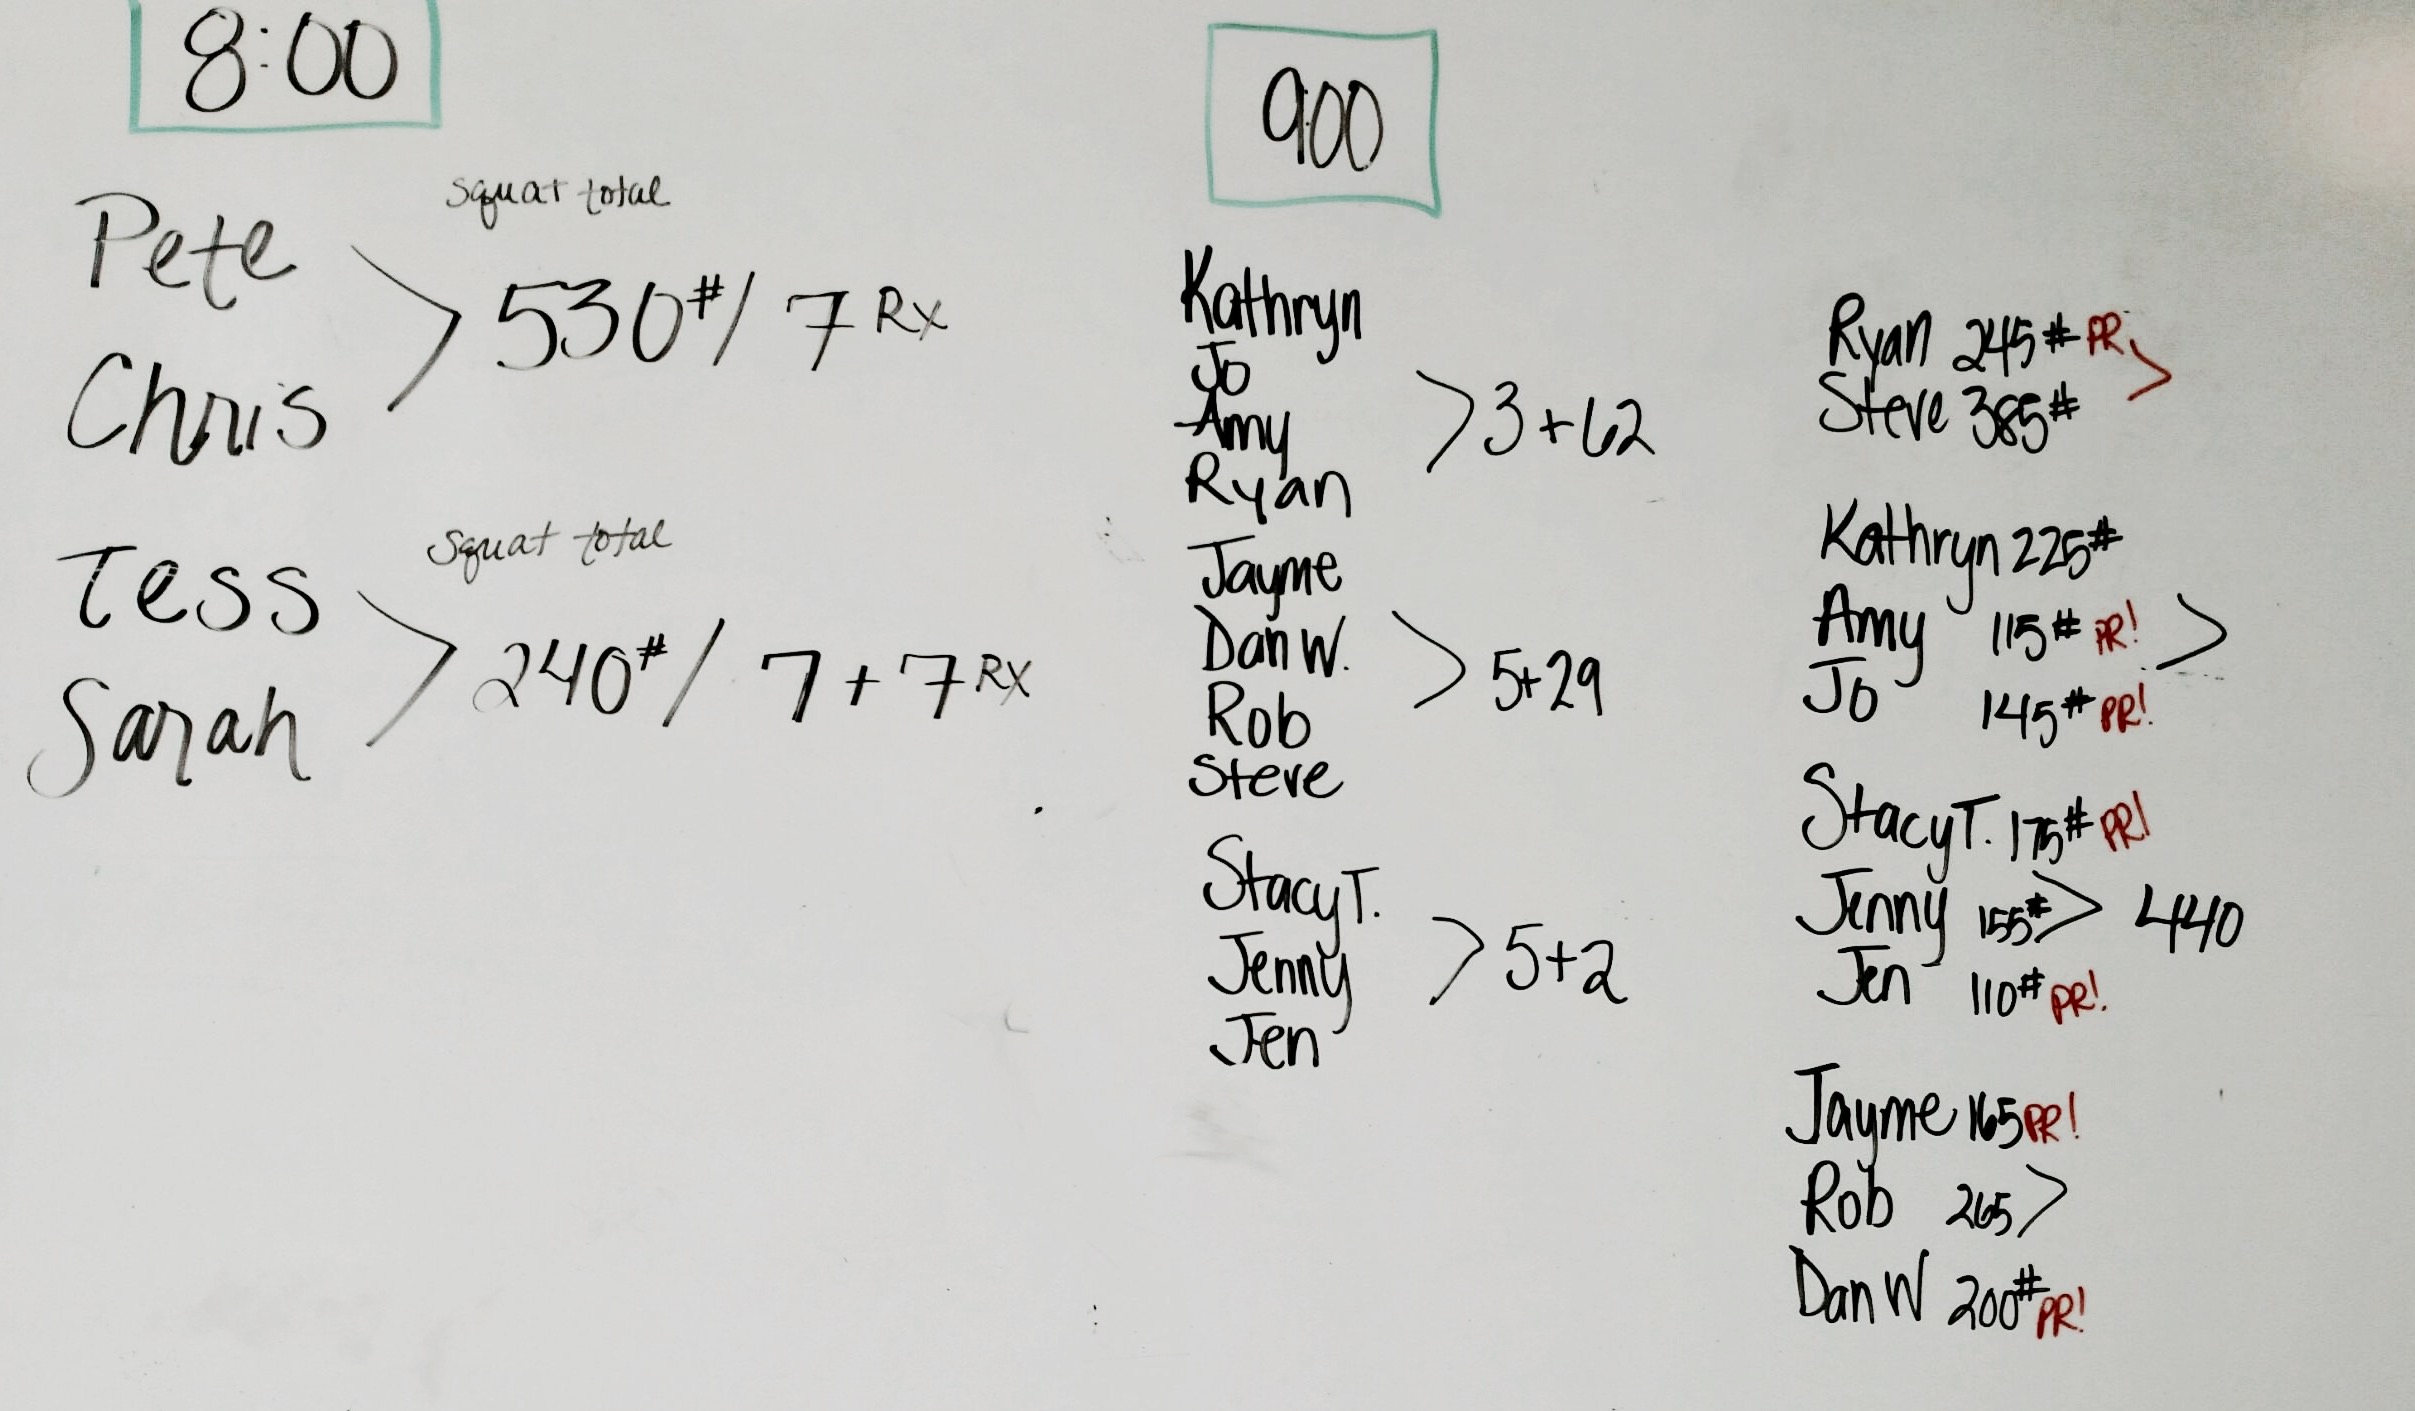 8:00
Pete
squat total
> 530#/ 7 Rx
Chris
Tess
squat total
> 240#/ 7+7 Rx
Sarah
9:00
Kathryn
Jo
Amy
Ryan
> 3+62
Jayme
Dan W.
Rob
Steve
> 5+29
Stacy T.
Jenny
Jen
> 5+2
Ryan 245# PR >
Steve 385#
Kathryn 225#
Amy 115# PR! >
Jo 145# PR!
Stacy T. 175# PR!
Jenny 155# > 440
Jen 110# PR!
Jayme 165 PR!
Rob 265 >
Dan W 200# PR!